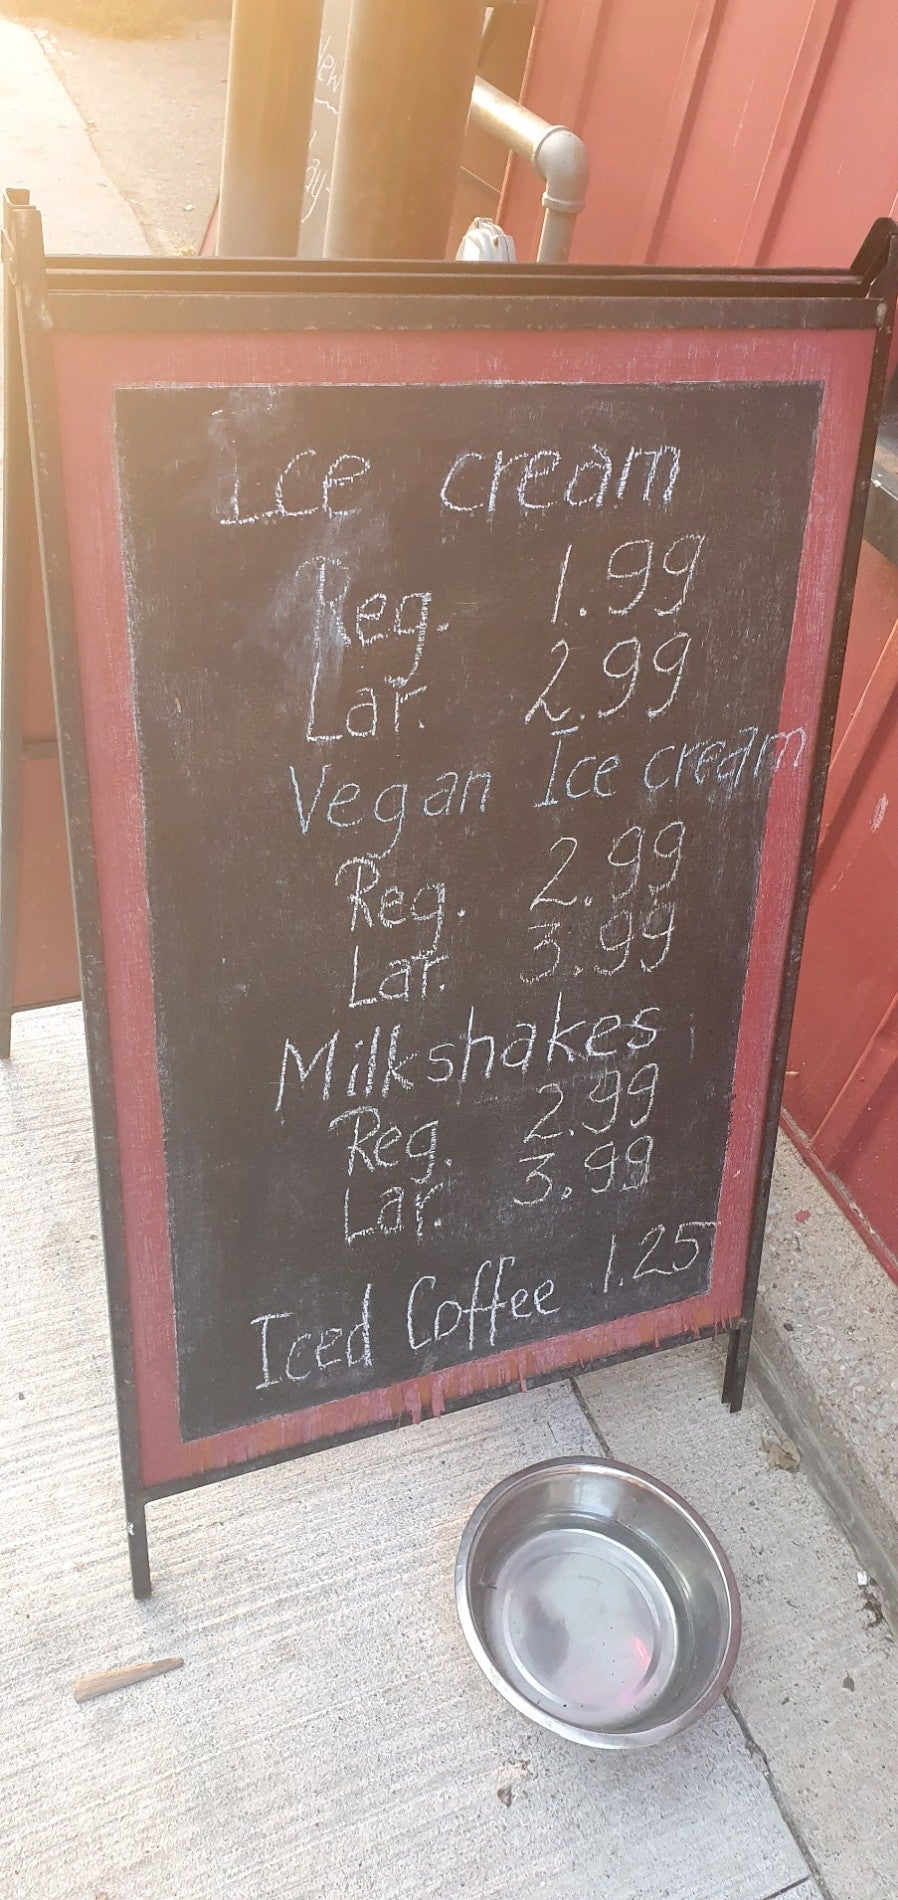 Ice cream
Reg. 1.99
Lar. 2.99
Vegan Ice cream
Reg. 2.99
Lar. 3.99
Milkshakes
Reg. 2.99
Lar. 3.99
Iced Coffee 1.25